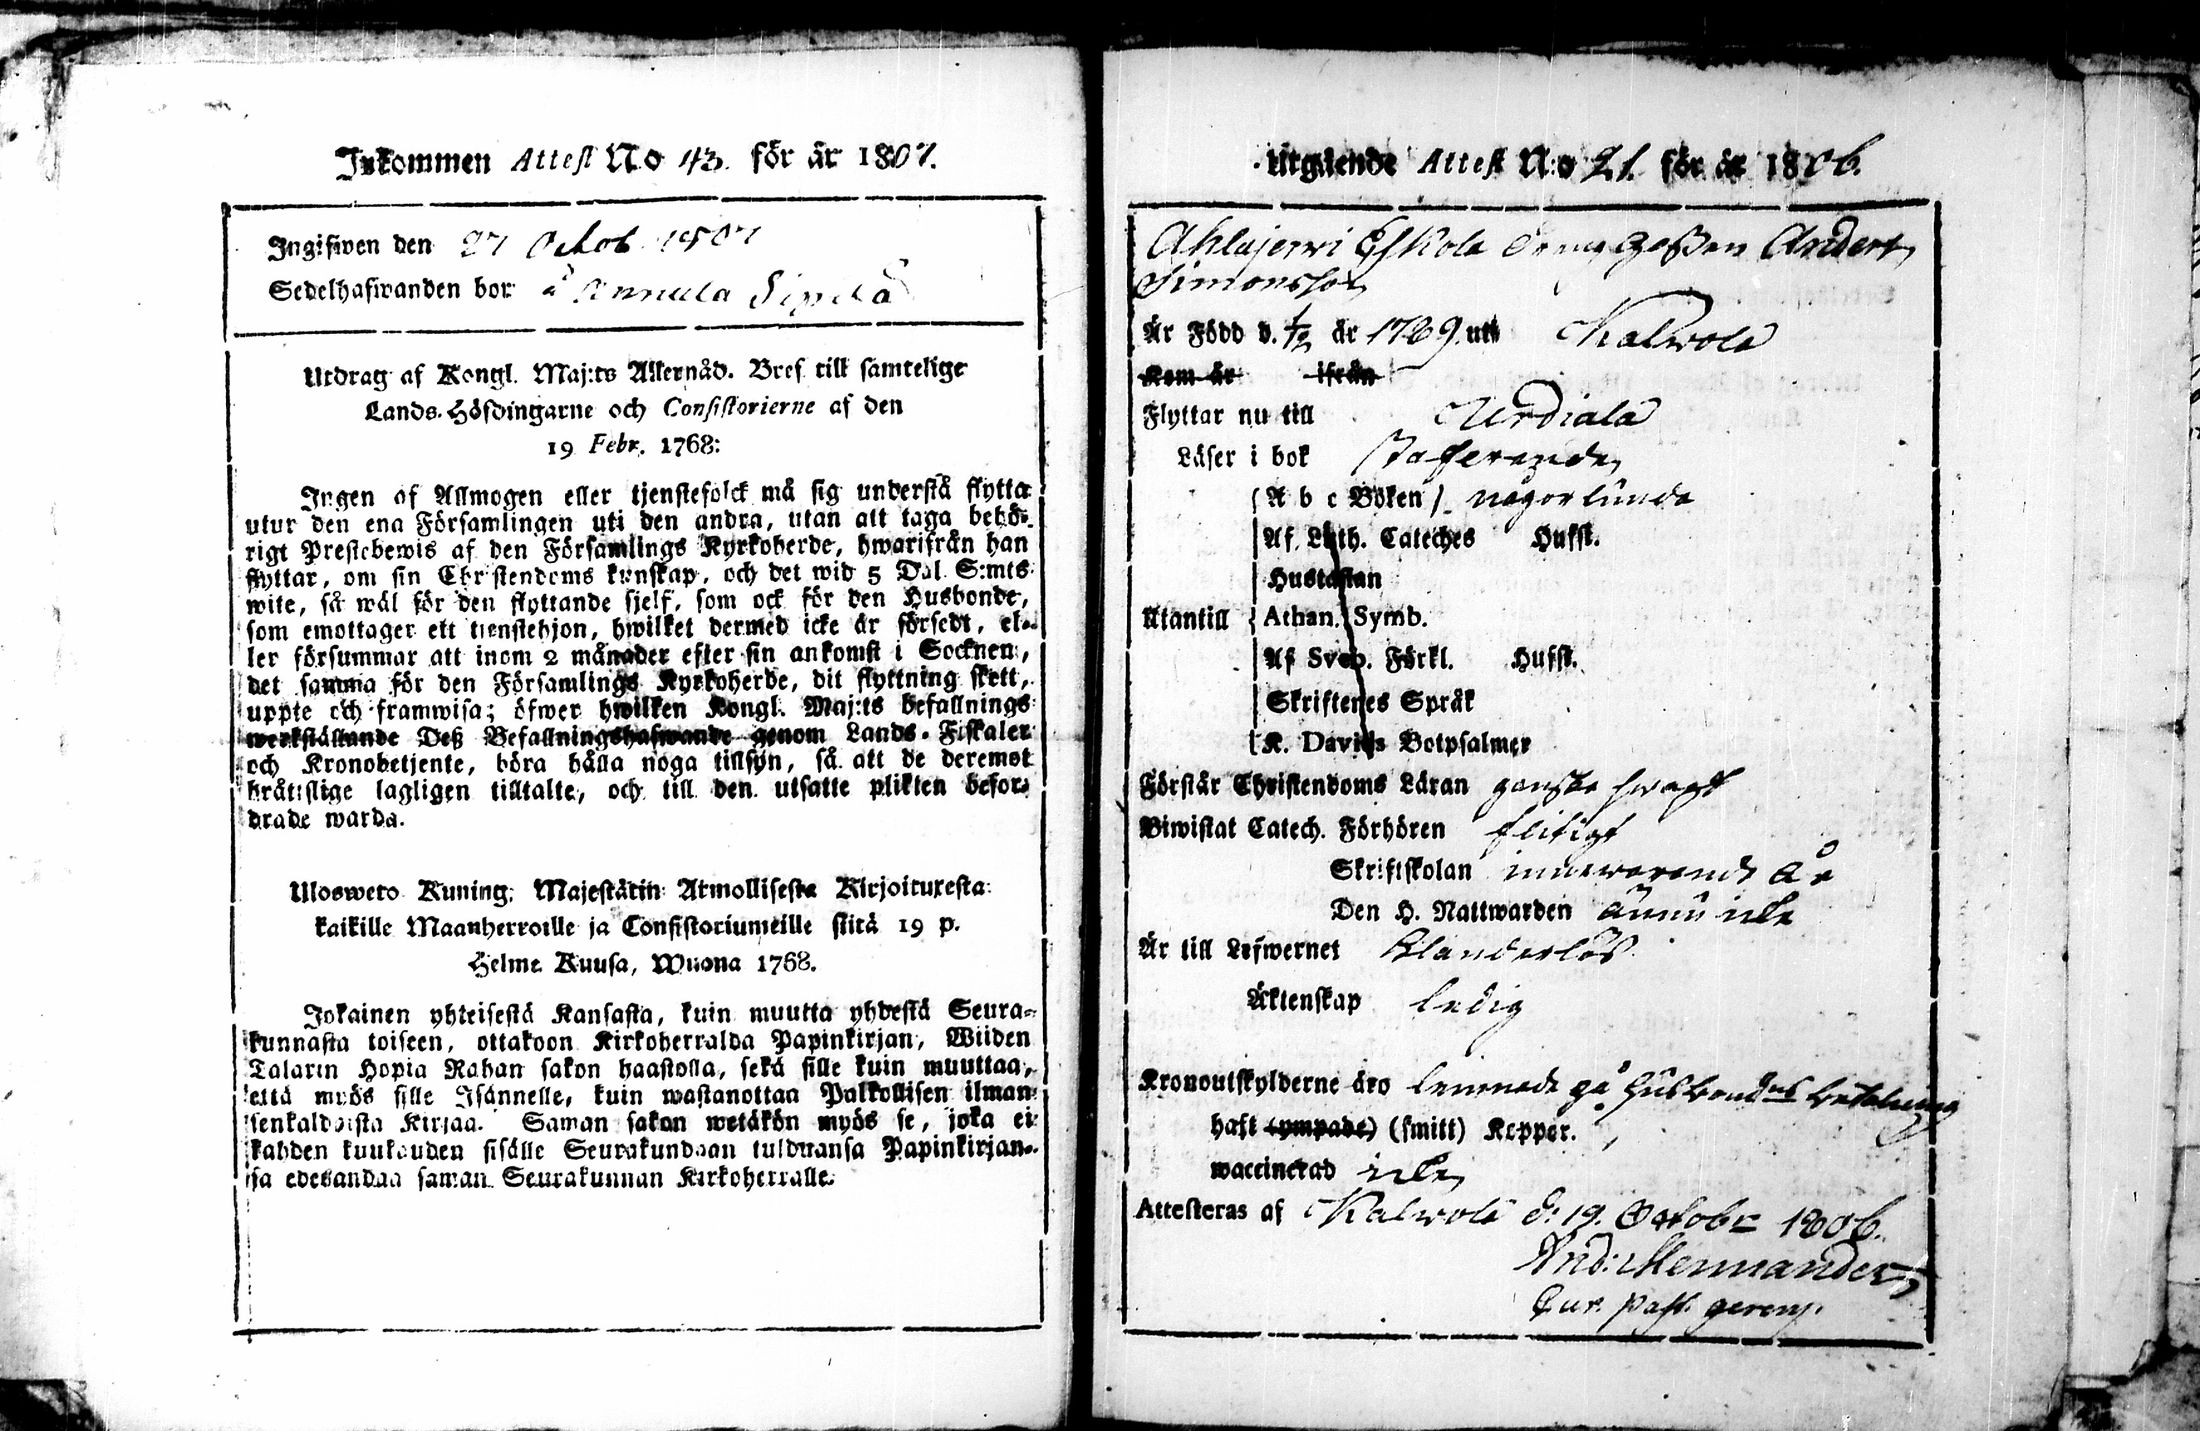 Inkommen Attest No 43. för år 1807.
Ingifwen den 27 Octob 1807
Sedelhafwanden bor å Annula Sipilä
Utdrag af Kongl. Maj:ts Allernåd. Bref till samtelige
Lands-Höfdingarne och Consistorierne af den
19 Febr. 1768:
Ingen af Allmogen eller tjenstefolck må sig understå flytta
utur den ena Församlingen uti den andra, utan att taga behö-
rigt Prestebewis af den Församlings Kyrkoherde, hwarifrån han
flyttar, om sin Christendoms kunskap, och det wid 5 Dal. S:mts
wite, så wäl för den flyttande sjelf, som ock för den Husbonde,
som emottager ett tienstehjon, hwilket dermed icke är försedt, el-
ler försummar att inom 2 månader efter sin ankomst i Socknen,
det samma för den Församlings Kyrkoherde, dit flyttning skett,
uppte och framwisa; öfwer hwilken Kongl. Maj:ts befallnings
werkställande Deß Befallningshafwande genom Lands-Fiskaler
och Kronobetjente, böra hålla noga tillsyn, så att de deremot
bråttslige lagligen tilltalte, och till den utsatte plikten befor-
drade warda.
Ulosweto Kuning. Majestätin Armollisesta Kirjoituxesta
kaikille Maanherroille ja Consistoriumeille siitä 19 p.
Helme Kuusa, Wuona 1768.
Jokainen yhteisestä Kansasta, kuin muutta yhdestä Seura-
kunnasta toiseen, ottakoon Kirkoherralda Papinkirjan, Wiiden
Talarin Hopia Rahan sakon haastolla, sekä sille kuin muuttaa,
että myös sille Isännelle, kuin wastanottaa Palkollisen ilman
senkaldaista Kirjaa. Saman sakon wetäkön myös se, joka ei
kahden kuukauden sisälle Seurakundaan tulduansa Papinkirjan-
sa edesandaa saman Seurakunnan Kirkoherralle.
Utgående Attest N:o 21. för år 1806.
Ahlajerwi Eskola Anders
Simonsson
Är Född d. år 1789. uti Kalwola
Kom år ifrån
Flyttar nu till Urdiala
Läser i bok stafwande
A b c Boken någorlunda
Af Luth. Cateches Hufst.
Hustaflan
Utantill Athan. Symb.
Af Sveb. Förkl. Hufst.
Skriftenes Språk
K. Davids Botpsalmer
Förstår Christendoms Läran ganska swagt
Biwistat Catech. Förhören flitigt
Skriftskolan innewarande år
Den H. Nattwarden ännu icke
Är till Lefwernet Klanderlös
Äktenskap ledig
Kronoutskylderne äro lemnade på husbondens betalning
haft (ympade) (smitt) Kopper.
waccinerad icke
Attesteras af Kalwola d: 19. Octobr 1806.
And: Mennander
Cur. past. gerens.